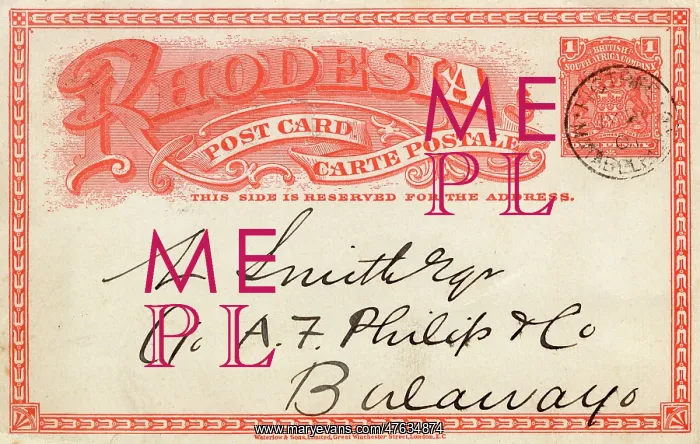 RHODESIA
POST CARD
CARTE POSTALE
1 BRITISH SOUTH AFRICA COMPANY 1
THIS SIDE IS RESERVED FOR THE ADDRESS.
ME
PL
ME
PL
Smith Esqr
A. F. Philip & Co
Bulawayo
Waterlow & Sons, Limited, Great Winchester Street, London, E.C.
www.maryevans.com/47634874